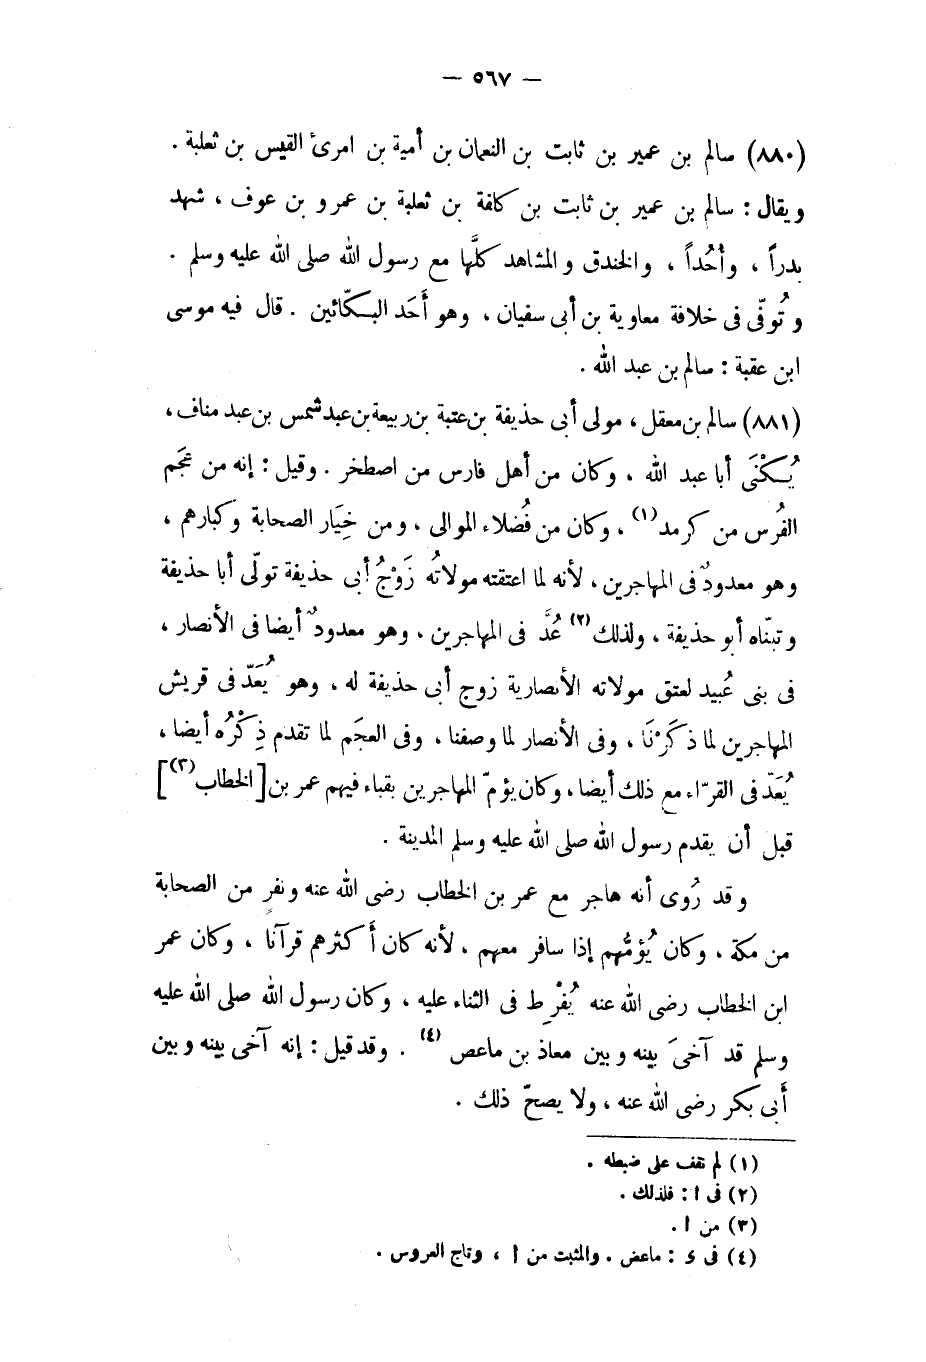 — ٥٦٧ —
(٨٨٠) سالم بن عمير بن ثابت بن النعمان بن أمية بن امرئ القيس بن ثعلبة .
ويقال : سالم بن عمير بن ثابت بن كلفة بن ثعلبة بن عمرو بن عوف ، شهد
بدراً ، وأُحُداً ، والخندق والمشاهد كلَّها مع رسول الله صلى الله عليه وسلم .
وتُوفّى فى خلافة معاوية بن أبى سفيان ، وهو أَحَد البكّائين . قال فيه موسى
ابن عقبة : سالم بن عبد الله .
(٨٨١) سالم بن معقل ، مولى أبى حذيفة بن عتبة بن ربيعة بن عبد شمس بن عبد مناف ،
يُكْنَى أبا عبد الله ، وكان من أهل فارس من اصطخر . وقيل : إنه من عَجَم
الفُرْس من كرمد(١) ، وكان من فُضلاء الموالى ، ومن خِيَار الصحابة وكبارهم ،
وهو معدودٌ فى المهاجرين ، لأنه لما اعتقته مولاتُه زَوْجُ أبى حذيفة تولّى أبا حذيفة
وتبنّاه أبو حذيفة ، ولذلك(٢) عُدَّ فى المهاجرين ، وهو معدودٌ أيضا فى الأنصار ،
فى بنى عُبيد لعتق مولاته الأنصارية زوج أبى حذيفة له ، وهو يُعَدّ فى قريش
المهاجرين لما ذكَرْنَا ، وفى الأنصار لما وصفنا ، وفى العجَم لما تقدم ذِكْرُه أيضا ،
يُعَدّ فى القرّاء مع ذلك أيضا ، وكان يؤمّ المهاجرين بقباء فيهم عمر بن [الخطاب(٣)]
قبل أن يقدم رسول الله صلى الله عليه وسلم المدينة .
وقد رُوى أنه هاجر مع عمر بن الخطاب رضى الله عنه ونفرٍ من الصحابة
من مكة ، وكان يُؤمُّهم إذا سافر معهم ، لأنه كان أَكثرهم قرآنا ، وكان عمر
ابن الخطاب رضى الله عنه يُفْرِط فى الثناء عليه ، وكان رسول الله صلى الله عليه
وسلم قد آخىَ بينه وبين معاذ بن ماعص (٤) . وقد قيل : إنه آخى بينه وبين
أَبى بكر رضى الله عنه ، ولا يصحّ ذلك .
(١) لم نقف على ضبطه .
(٢) فى ا : فلذلك .
(٣) من ا .
(٤) فى ى : ماعض . والمثبت من أ ، وتاج العروس .